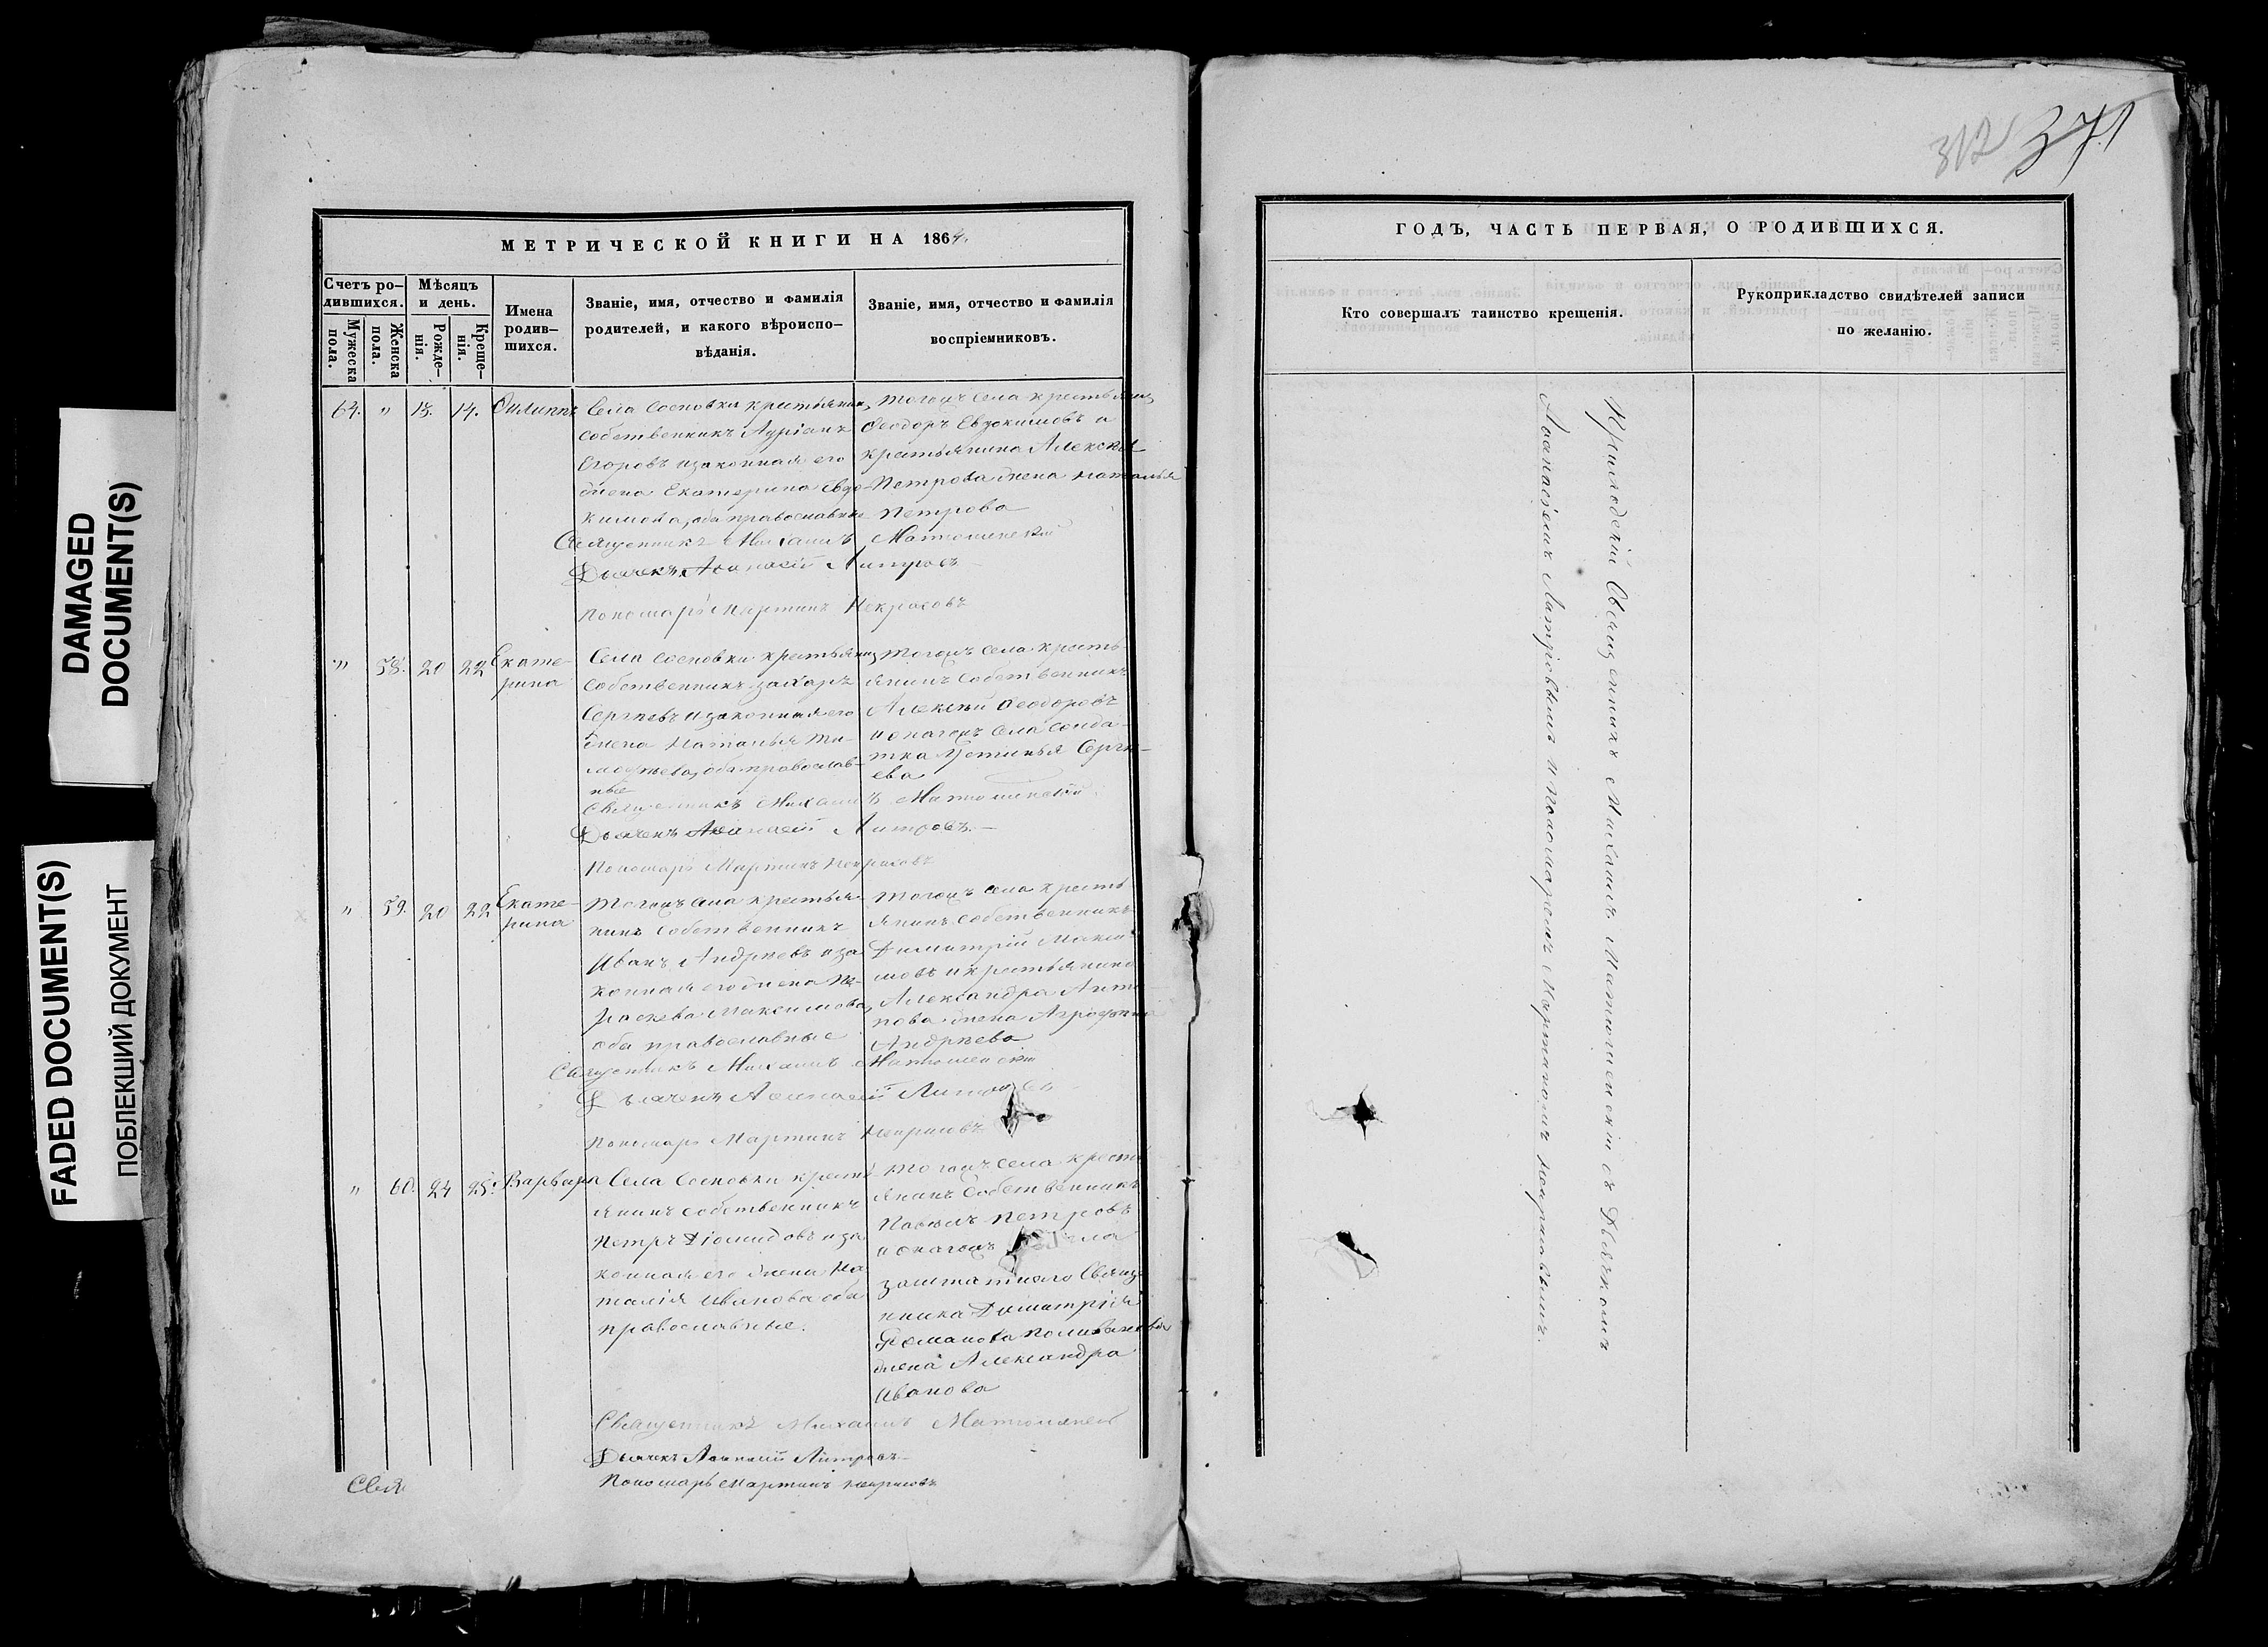 312 371
DAMAGED
DOCUMENT(S)
FADED DOCUMENT(S)
ПОБЛЕКШИЙ ДОКУМЕНТ
МЕТРИЧЕСКОЙ КНИГИ НА 1864.
Счетъ ро-
дившихся.
Мужеска
пола.
Женска
пола.
Мѣсяцъ
и день.
Рожде-
нія.
Креще-
нія.
Имена
родив-
шихся.
Званіе, имя, отчество и фамилія
родителей, и какого вѣроиспо-
вѣданія.
Званіе, имя, отчество и фамилія
воспріемниковъ.
64. " 13. 14. Филиппъ
Села Сосновки крестьянинъ
собственникъ Адріанъ
Егоровъ изаконная его
жена Екатерина Евдо-
кимова, оба православные
тогожъ села крестьянинъ
Ѳеодоръ Евдокимовъ и
крестьянина Алексѣя
Петрова жена Наталья
Петрова
Священникъ Михаилъ Матюшенскій
Дьячекъ Аѳанасій Литровъ
Пономарь Мартинъ Некрасовъ
" 58. 20 22 Екате-
рина
Села Сосновки крестьянинъ
собственникъ Захаръ
Сергѣевъ изаконная его
жена Наталья Ти-
моѳеева, оба православ-
ные
тогожъ села кресть-
янинъ собственникъ
Алексѣй Ѳеодоровъ
и онагожъ села солда-
тка Устинья Сергѣ-
ева
Священникъ Михаилъ Матюшенскій
Дьячекъ Аѳанасій Литровъ.
Пономарь Мартинъ Некрасовъ
" 59. 20 22 Екате-
рина
Тогожъ села крестья-
нинъ собственникъ
Иванъ Андреевъ иза-
конная его жена Па-
раскева Максимова,
оба православные
тогожъ села кресть
янинъ собственникъ
Димитрій Макси-
мовъ и крестьянина
Александра Анти-
пова жена Агрофина
Андреева
Священникъ Михаилъ Матюшенскій
Дьячекъ Аѳанасій Литровъ
Пономарь Мартинъ Некрасовъ
" 60. 24 25. Варвара
Села Сосновки кресть
янинъ собственникъ
Петръ Діомидовъ иза
конная его жена На
талія Иванова оба
православные.
тогожъ села кресть
янинъ собственникъ
Павелъ Петровъ
и онагожъ села
заштатнаго Свяще
нника Димитрія
жена Александра
Иванова
Священникъ Михаилъ Матюшенскій
Дьячекъ Аѳанасій Литровъ
Пономарь Мартинъ Некрасовъ
Свя
ГОДЪ, ЧАСТЬ ПЕРВАЯ, О РОДИВШИХСЯ.
Кто совершалъ таинство крещенія.
Рукоприкладство свидѣтелей записи
по желанію.
Священникъ Михаилъ Матюшенскій съ Дьячкомъ
Аѳанасіемъ Литровымъ и Пономаремъ Мартиномъ Некрасовымъ.